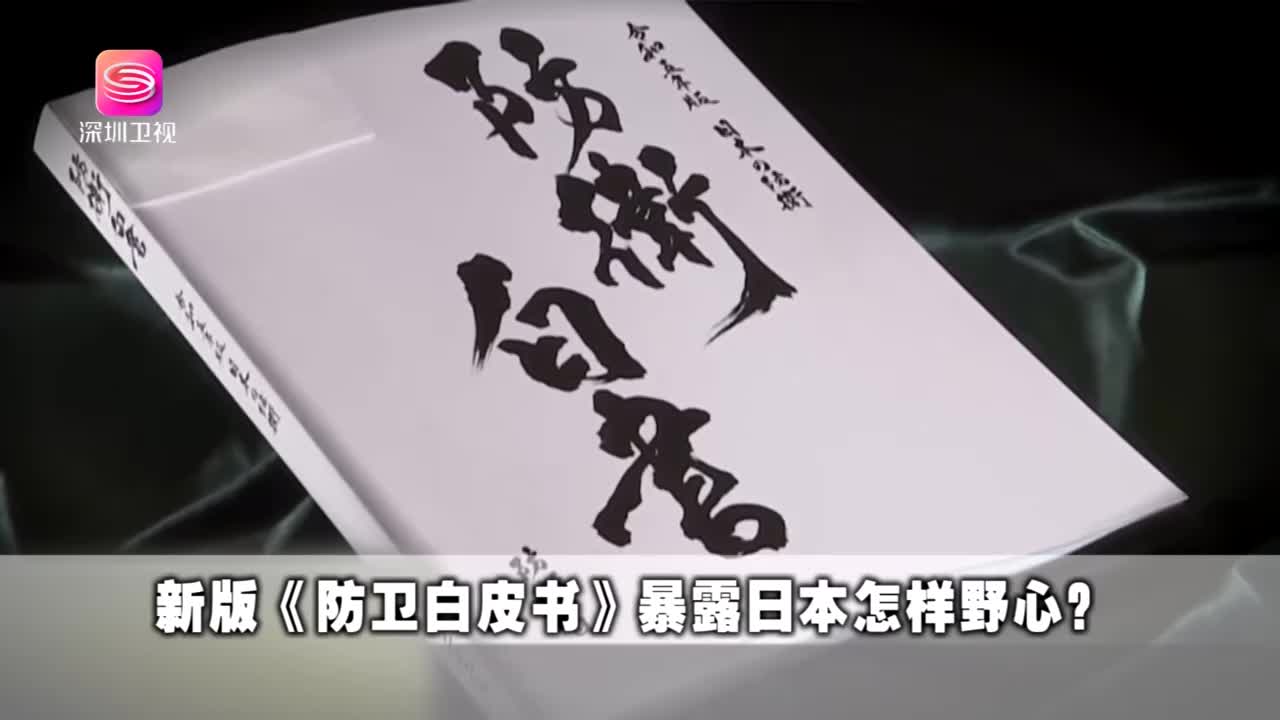 深圳卫视
防衛白書
令和五年版 日本の防衛
防衛白書
令和五年版 日本の防衛
新版《防卫白皮书》暴露日本怎样野心?